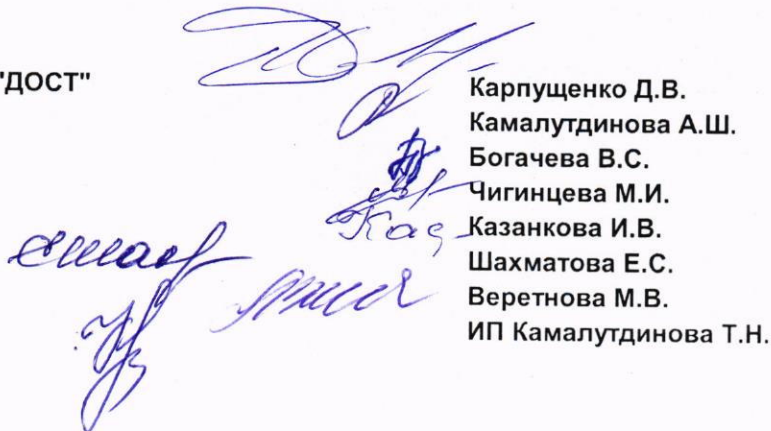 "ДОСТ"
Карпущенко Д.В.
Камалутдинова А.Ш.
Богачева В.С.
Чигинцева М.И.
Казанкова И.В.
Шахматова Е.С.
Веретнова М.В.
ИП Камалутдинова Т.Н.